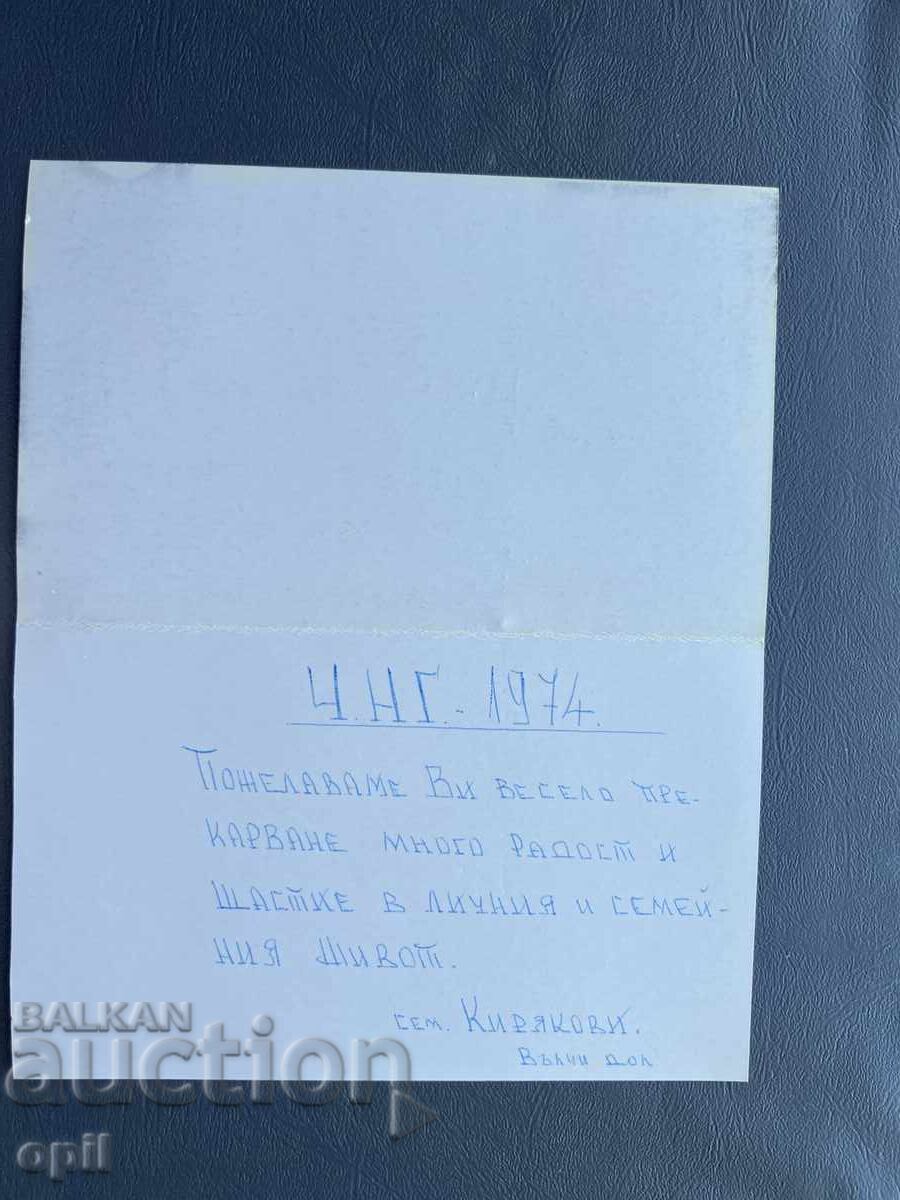 Ч.Н.Г. - 1974.
Пожелаваме Ви весело пре-
карване много радост и
щастие в личния и семей-
ния живот.
сем. Кирякови.
Вълчи дол
BALKAN
auction
opil